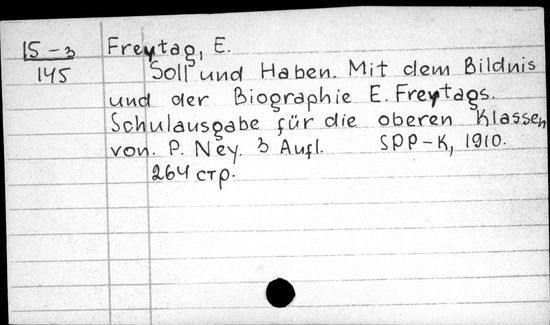 15-3 Freytag, E.
145 Soll und Haben. Mit dem Bildnis
und der Biographie E. Freytags.
Schulausgabe für die oberen Klassen
von. P. Ney. 3 Aufl. SPP-K, 1910.
264 стр.